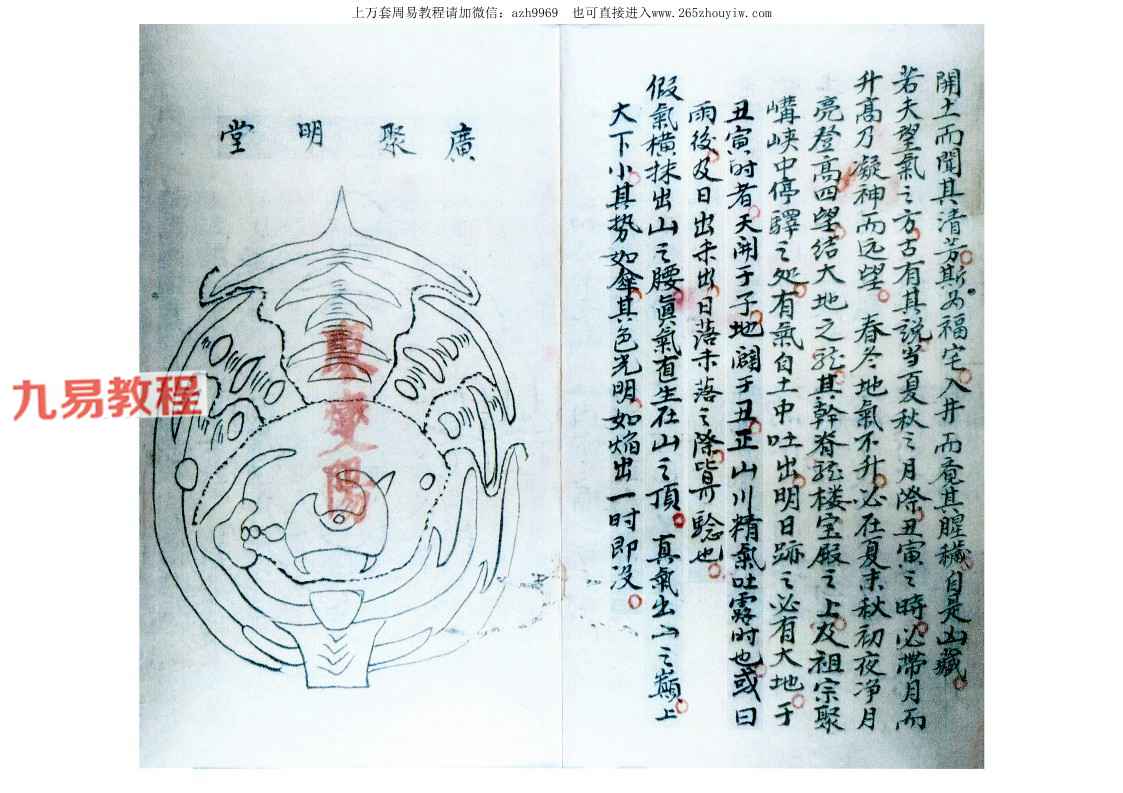 上万套周易教程请加微信：azh9969 也可直接进入www.265zhouyiw.com
開土而聞其清芳斯為福宅入井而覔其腥穢自是凶藏
若夫望氣之方古有其説当夏秋之月際丑寅之時必帶月而
升高乃凝神而远望春冬地氣不升必在夏末秋初夜净月
亮登高四望结大地之龍其幹脊龍楼宝殿之上及祖宗聚
嵵峡中停驛之处有氣自土中吐出明日跡之必有大地于
丑寅时者天開于子地闢于丑正山川精氣吐露时也或曰
雨後及日出未出日落未落之際皆可驗也
假氣横抹出山之腰眞氣直生在山之頂真氣出山之巔上
大下小其势如傘其色光明如焰出一时即没
廣聚明堂
九易教程